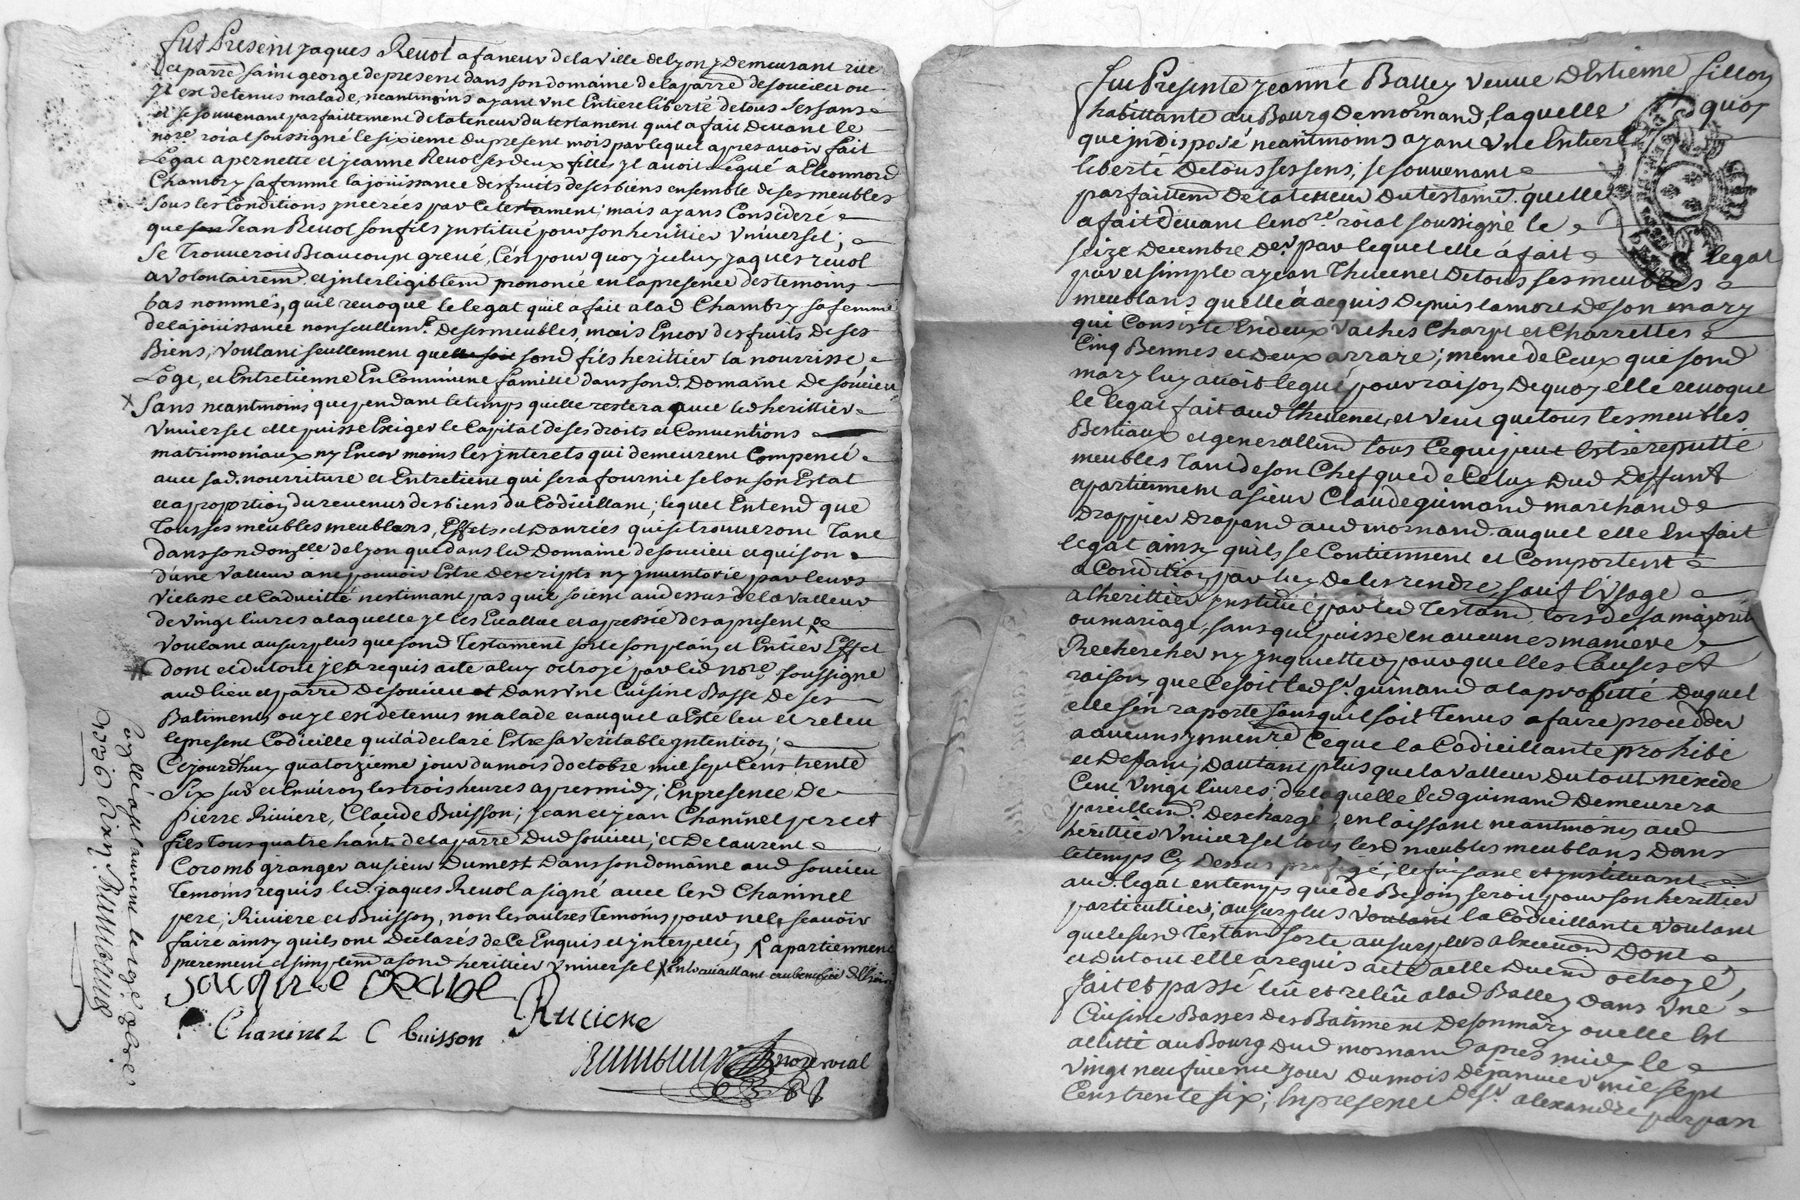 fut Present Jaques Revol afaneur de la ville de Lyon y demeurant rue
et parre saint george de present dans son domaine de la parre de soucieu ou
jl est detenus malade, neantmoins ayant vne Entiere liberté de tous ses sans
et se souvenant parfaittement de la teneur du testament quil a fait devant le
nore roial soussigné le sixieme du present mois par lequel apres avoir fait
Legat a pernette et jeanne Revol ses deux filles jl avoit legué a Eleonnord
Chambry sa femme la jouissance des fruits de ses biens ensemble de ses meubles
sous les Conditions jnserées par ce testament; mais ayans Consideré
que Jean Revol son fils jnstitué pour son herittier vniversel;
se Trouveroit Beaucoup grevé, C'est pour quoy jceluy jaques revol
a volontairemt et jntelligiblemt prononcé en la presence des temoins
bas nommés, qu'il revoque le legat quil a fait a lad Chambry sa femme
de la jouissance non seullemt de ses meubles, mais Encor des fruits de ses
Biens, voulant seullement que sond fils herittier la nourrisse
Loge, et Entretienne En Commune famille dans sond Domaine de soucieu
x sans neantmoins que pendant le temps quelle restera avec led herittier
vniversel elle puisse Exiger le Capital de ses droits et Conventions
matrimoniaux ny Encor moins les jnterets qui demeurent Compensé
avec sad. nourriture et Entretient qui sera fournie selon son Estat
et a proportion du revenus des biens du Codicillant; lequel Entend que
tous ses meubles meublans, Effets et Danrées qui se trouveront Tant
dans son domlle de lyon que dans led Domaine de soucieu et qui son
d'une valleur a ne pouvoir Estre descripts ny jnventorié par leurs
vielesse et Caducitté n'estimant pas quil soient au dessus de la valleur
de vingt livres a laquelle jl les Evallue et apressie des a present
voulant au surplus que sond Testament sorte son plain et Entier Effet
dont et du tout jl a requis acte a luy octroyé par led nore soussigné
aud lieu et parre de soucieu et dans vne Cuisine Basse de ses
Batiments ou jl est detenus malade et auquel a Esté leu et releu
le present Codicille quil a declaré Estre sa veritable jntention;
Cejourdhuy quatorzieme jour du mois doctobre mil sept Cens trente
six sur et Environ les trois heures apres midy; En presence de
pierre Riviere, Claude Buisson; jean et jean Chaninel pere et
fils tous quatre hants de la parre dud soucieu; et de laurent
Coromb granger au sieur Dumest dans son domaine aud soucieu
Temoins requis led. jaques Revol a signé avec lesd Chaninel
pere; Riviere et Buisson, non les autres Temoins pour ne le scavoir
faire ainsy quils ont Declarés de ce Enquis et jnterpellés apartiennent
purement et simplemt a sond herittier vniversel x en travaillant au benefice
jacque Revol
Riviere
Chaninel C buisson
nore roial
fut Presente jeanne Balley veuve d'Estieme fillon
habittante au Bourg de mornand, laquelle quoy
que jndisposé neantmoins ayant vne Entiere
liberté de tous ses sens, se souvenant
parfaittemt de la teneur du testamt quelle
a fait devant le nore roial soussigné le
seize decembre der par lequel elle a fait legat
pur et simple a jean Thevenet de tous ses meubles
meublans quelle a acquis depuis la mort de son mary
qui Consiste En deux vaches Charre et Charrettes
Cinq Bennes et deux arrare; même de ceux que sond
mary luy avoit legué pour raison de quoy elle revoque
le legat fait aud thevenet, et veut que tous les meubles
Bestiaux et generallemt tous ce qui peut Estre reputté
meubles tant de son Chef que de Celuy dud deffunt
apartiennent a sieur Claude guimand marchand
drappier drapand aud mornand auquel elle En fait
legat ainsy quils se Contiennent et Comportent
a Condition par luy de les rendre, sauf l'vsage
a lherittier jnstitué par led Testamt lors de sa majorité
ou mariage, sans qu'il puisse en aucunes maniere
Rechercher ny jnquietter pour quelles Causes et
raison que ce soit led sr. guimand a la probitté duquel
elle s'en raporte sans quil soit Tenus a faire procedder
a aucuns jnventre Ce que la Codicillante prohibe
et deffant, d'autant plus que la valleur du tout n'exede
Cent vingt livres; de laquelle led guimand demeurera
pareillemt deschargé, en laissant neantmoins aud
herittier vniversel tous lesd meubles meublans dans
le temps Cy dessus prefigé; le faisant et jnstituant
aud. legat en temps que de Besoin seroit pour son herittier
particullier; au surplus voulant la Codicillante voulant
que le susd Testamt sorte au surplus a Execution dont
et du tout elle a requis acte a elle duemt octroyé,
fait et passé leu et releu a lad Balley dans vne
Cuisine Basses des Batiment de son mary ou elle Est
alitté au Bourg dud mornand apres midy le
vingt neufvieme jour du mois de janvier mil sept
Cens trente six; En presence de sr. alexandre parpan